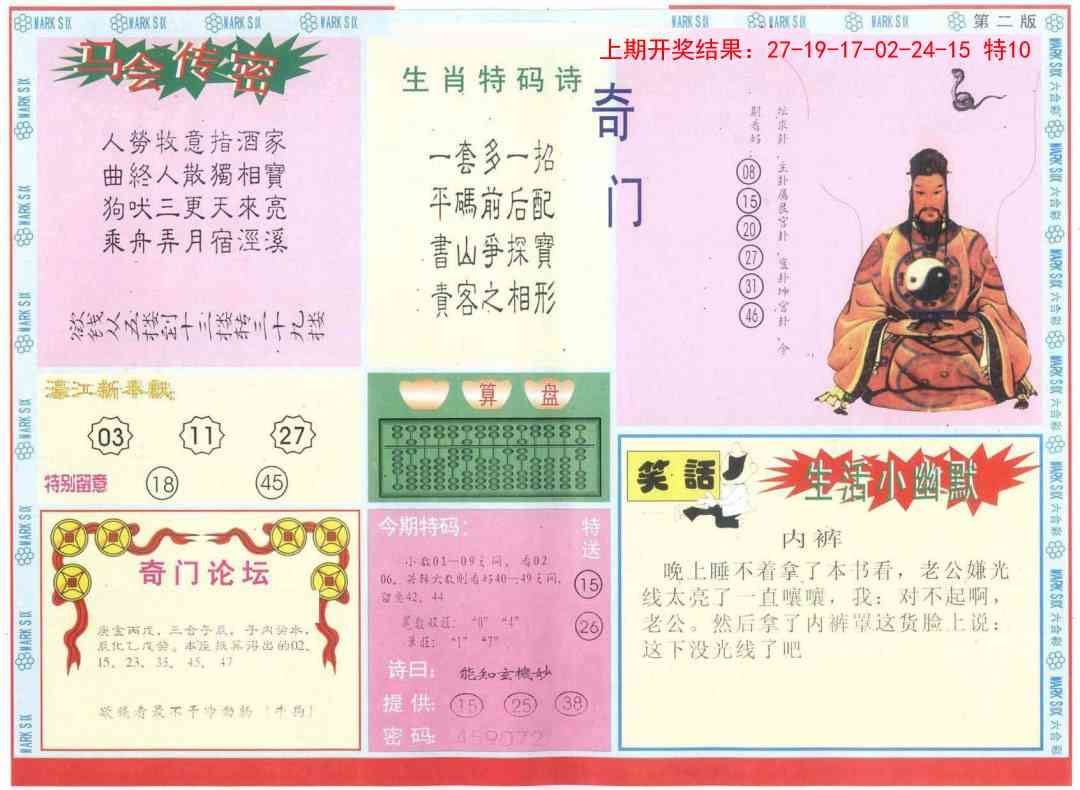 MARK SIX MARK SIX MARK SIX MARK SIX MARK SIX MARK SIX MARK SIX 第二版
上期开奖结果: 27-19-17-02-24-15 特10
马会传密
人勞牧意指酒家
曲終人散獨相寶
狗吠三更天來亮
乘舟弄月宿涇溪
欲钱从五楼到十三楼转三十九楼
生肖特码诗
一套多一招
平碼前后配
書山爭探寶
貴客之相形
奇门
08
15
20
27
31
46
濠江新奉献
03 11 27
特别留意 18 45
算盘
奇门论坛
庚寅丙戊，三合子辰，子内癸水，
辰化乙戊癸。本座推算得出的02、
15、23、35、45、47
欲钱看最不干净动物（牛狗）
今期特码:
小数01—09之间，看02
06，若转大数则看好40—49之间，
留意42、44
尾数必旺: "0" "4"
单旺: "1" "7"
诗曰: 能知玄機妙
提供: 15 25 38
密码: 459072
特送
15
26
笑話
生活小幽默
内裤
晚上睡不着拿了本书看，老公嫌光
线太亮了一直嚷嚷，我：对不起啊，
老公。然后拿了内裤罩这货脸上说：
这下没光线了吧